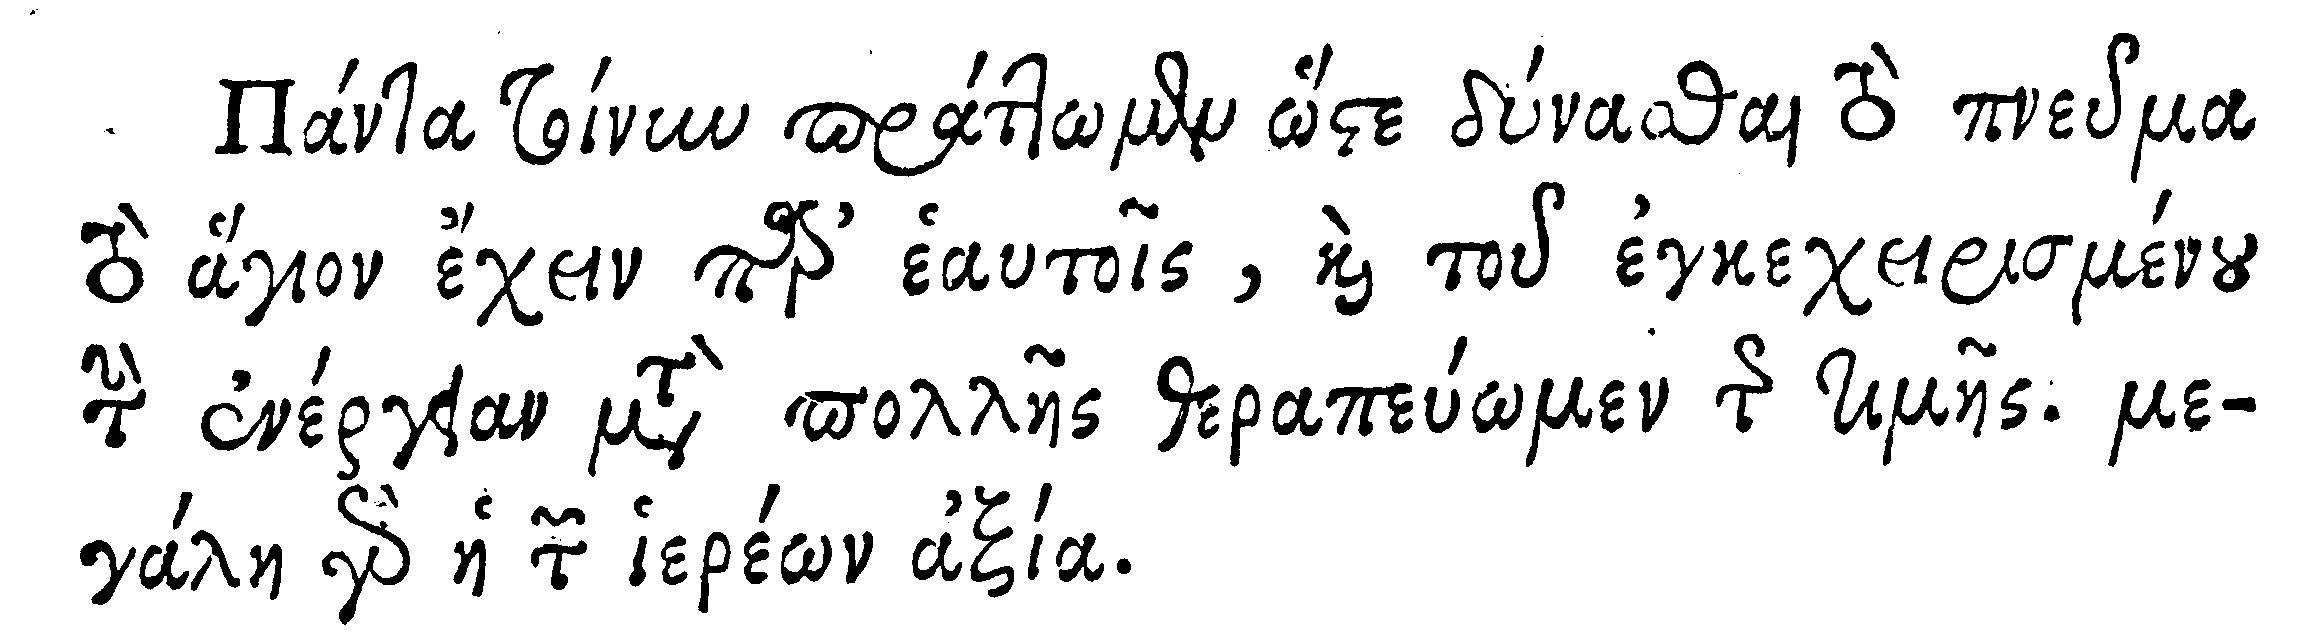 Πάντα τοίνυν πράττωμεν ὥστε δύνασθαι τὸ πνεῦμα
τὸ ἅγιον ἔχειν παρ’ ἑαυτοῖς, καὶ τοῦ ἐγκεχειρισμένου
τὴν ἐνέργειαν μετὰ πολλῆς θεραπεύωμεν τῆς τιμῆς. με-
γάλη γὰρ ἡ τῶν ἱερέων ἀξία.